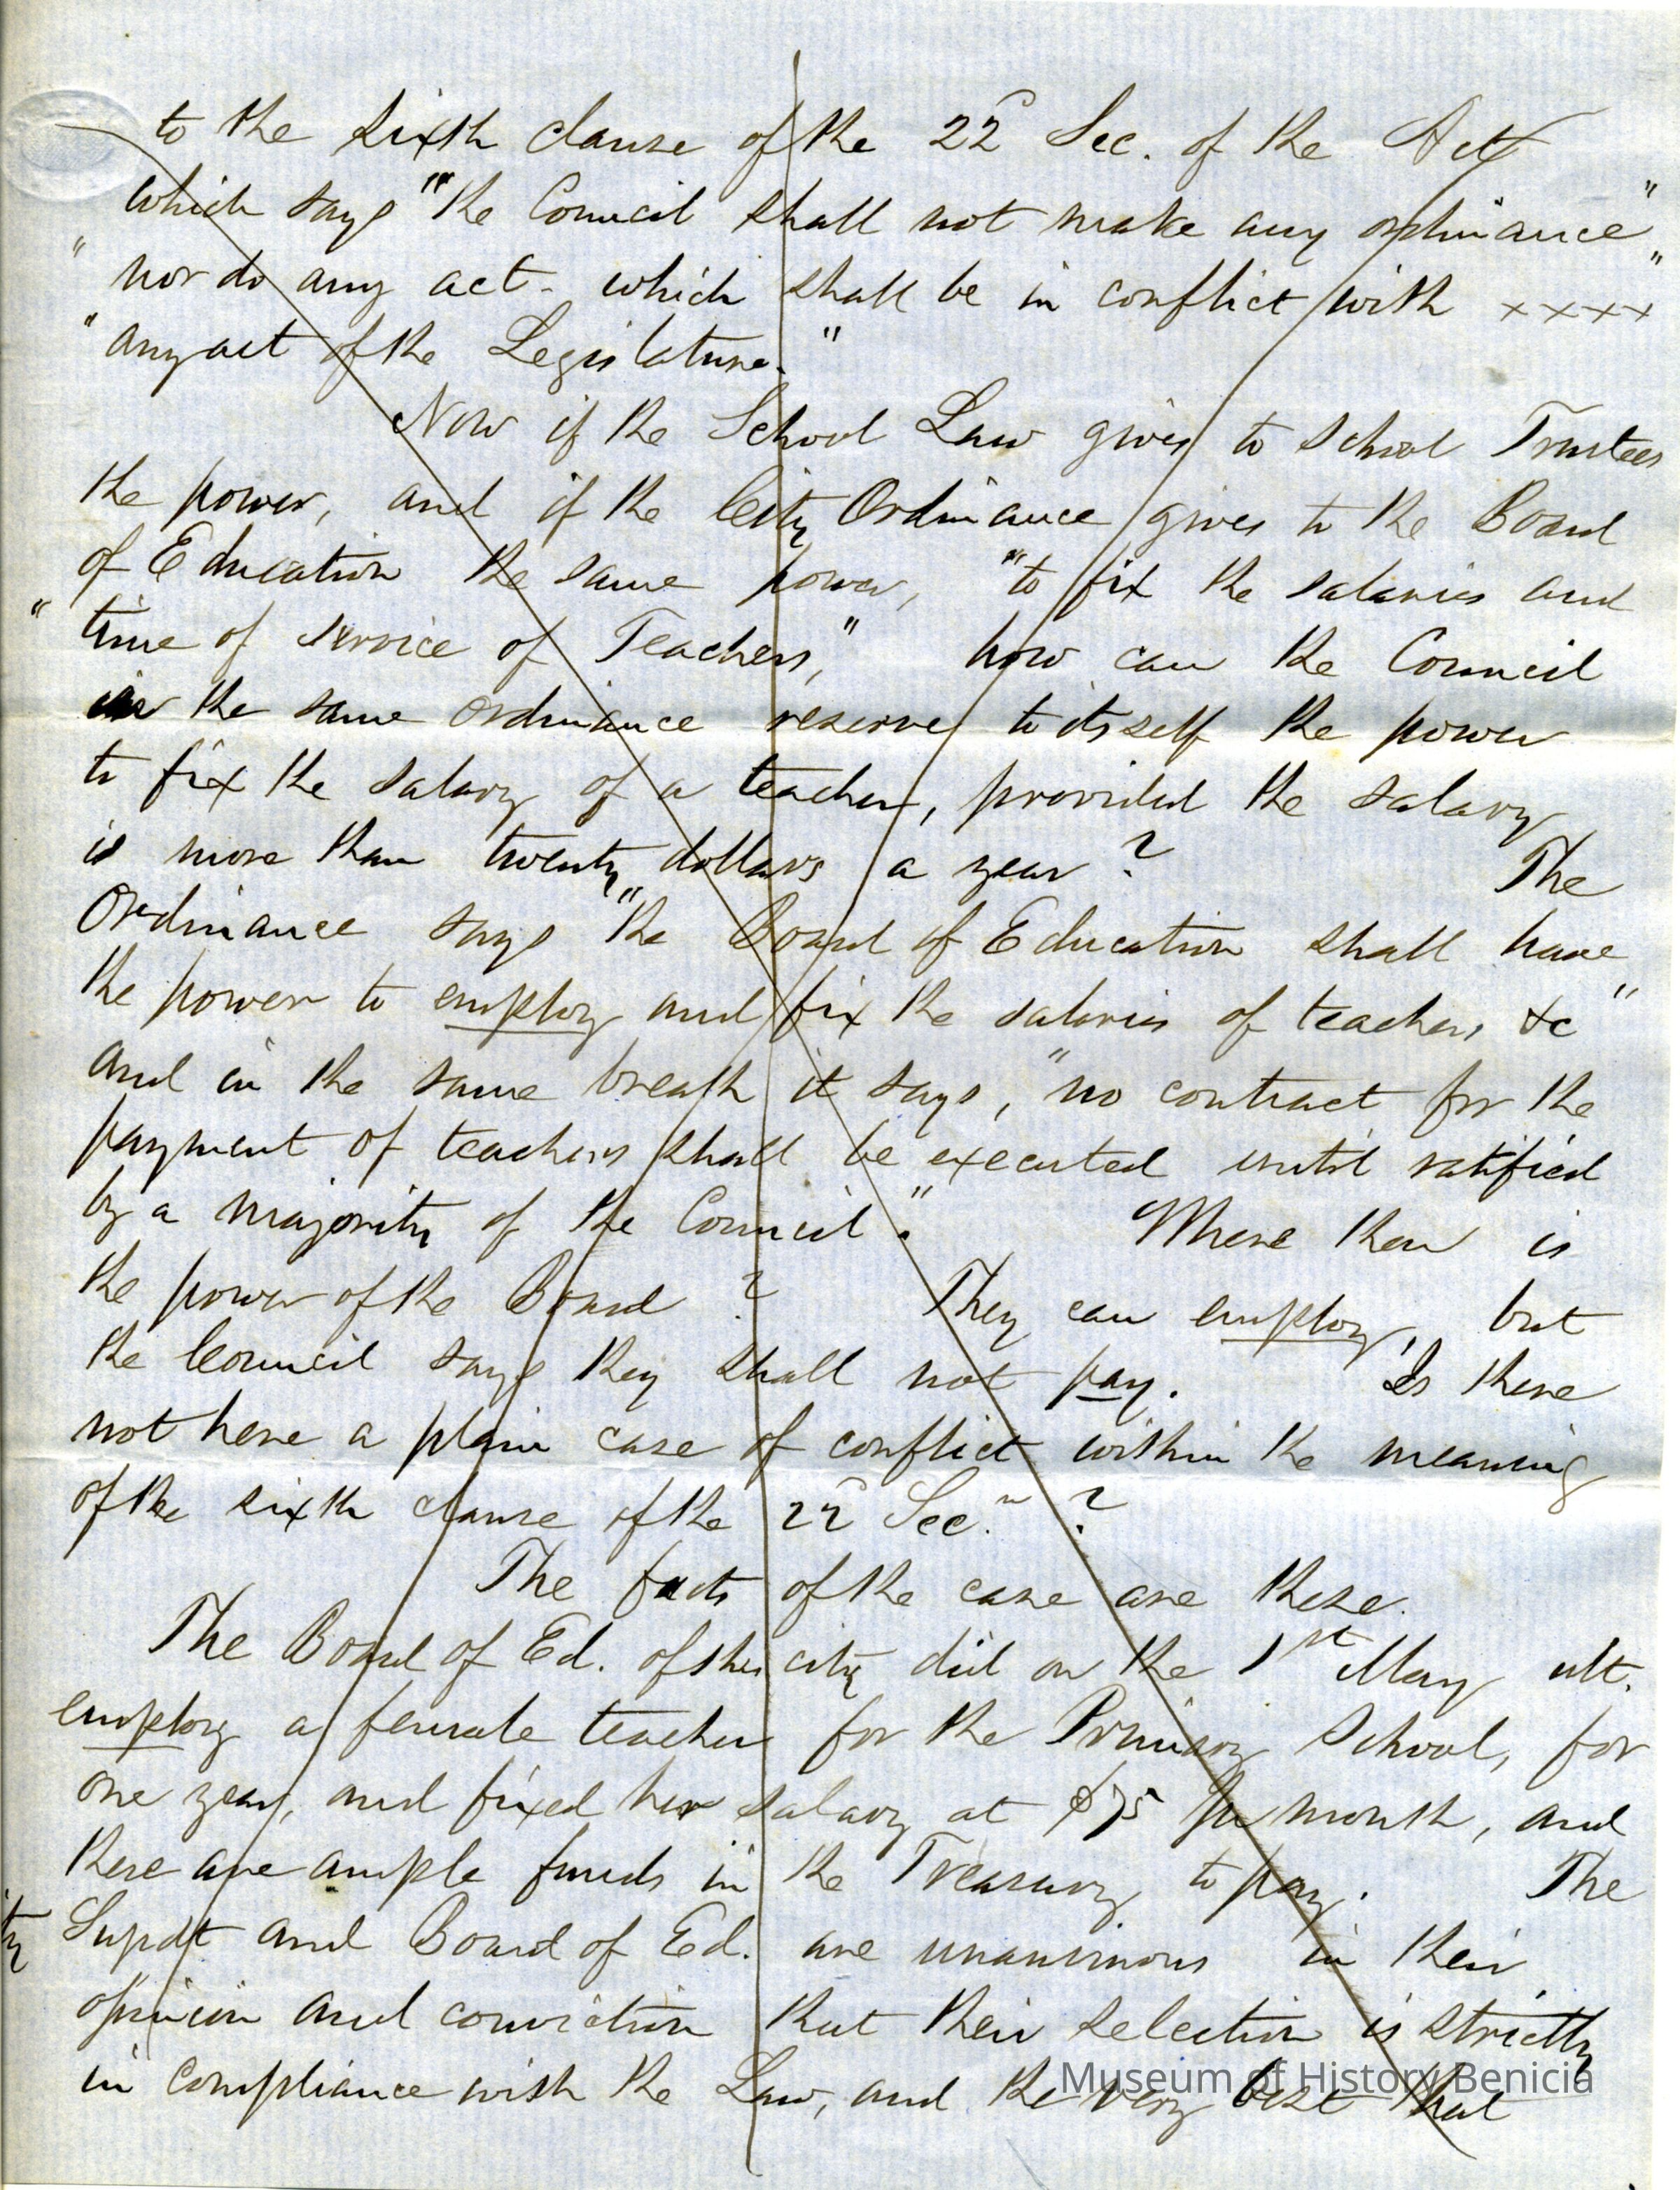 to the sixth clause of the 22d Sec. of the Act
which says "the Council shall not make any ordinance"
"nor do any act - which shall be in conflict with xxxx"
"any act of the Legislature."
Now if the School Law gives to School Trustees
the power, and if the City Ordinance gives to the Board
of Education the same power, "to fix the salaries and
"time of service of Teachers," how can the Council
in the same ordinance reserve to itsself the power
to fix the salary of a teacher, provided the salary
is more than twenty dollars a year? The
Ordinance says "the Board of Education shall have
the power to employ and fix the salaries of teachers &c"
and in the same breath it says, "no contract for the
payment of teachers shall be executed until ratified
by a majority of the Council". Where then is
the power of the Board? They can employ, but
the Council says they shall not pay. Is there
not here a plain case of conflict within the meaning
of the sixth clause of the 22d Sec.?
The facts of the case are these.
The Board of Ed. of this city did on the 1st May ult.
employ a female teacher for the Primary School, for
one year, and fixed her salary at $75 per month, and
there are ample funds in the Treasury to pay. The
Supdt and Board of Ed. are unanimous in their
opinion and conviction that their selection is strictly
in compliance with the Law, and the very best that
Museum of History Benicia